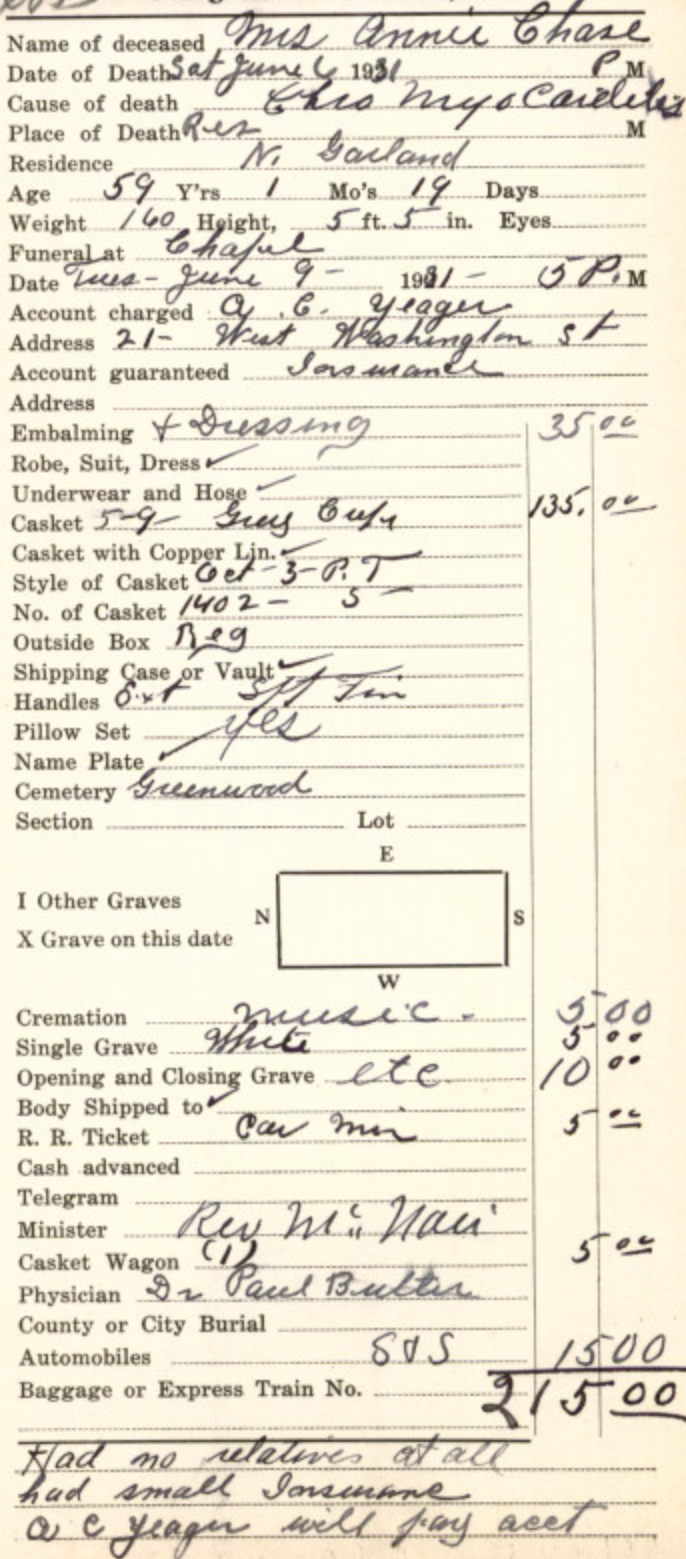 Name of deceased Mrs Annie Chase
Date of Death Sat June 6 1931 P M
Cause of death Chro Myocarditis
Place of Death Res M
Residence N. Garland
Age 59 Y'rs 1 Mo's 19 Days
Weight 160 Height, 5 ft. 5 in. Eyes
Funeral at Chapel
Date Tues - June 9 - 1931 - 5 P. M
Account charged A. C. Yeager
Address 21 - West Washington St
Account guaranteed Insurance
Address
Embalming + Dressing 35 00
Robe, Suit, Dress ✓
Underwear and Hose ✓
Casket 5-9 - Grey Crepe 135. 00
Casket with Copper Lin. ✓
Style of Casket Oct - 3 - P. T
No. of Casket 1402 - S
Outside Box Reg
Shipping Case or Vault ✓
Handles Ext Tin
Pillow Set yes
Name Plate ✓
Cemetery Greenwood
Section Lot
E
I Other Graves
N S
X Grave on this date
W
Cremation music - 5 00
Single Grave White 5 00
Opening and Closing Grave etc 10 00
Body Shipped to ✓
R. R. Ticket Car Min 5 00
Cash advanced
Telegram
Minister Rev McNair
Casket Wagon (1) 5 00
Physician Dr Paul Butler
County or City Burial
Automobiles S & S 15 00
Baggage or Express Train No. 215 00
Had no relatives at all
had small Insurance
A C Yeager will pay acct